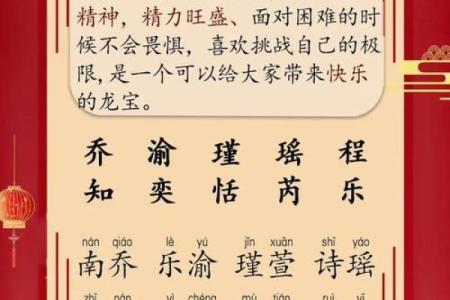 精神，精力旺盛、面对困难的时
候不会畏惧，喜欢挑战自己的极
限,是一个可以给大家带来快乐
的龙宝。
乔 渝 瑾 瑶 程
知 奕 恬 芮 乐
nán qiáo lè yú jǐn xuān shī yáo
南乔 乐渝 瑾萱 诗瑶
zhī nán yì chéng mù tián ruì yī